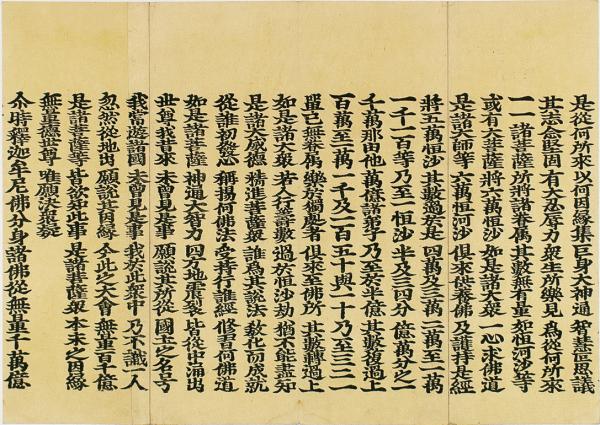 是從何所來 以何因緣集 巨身大神通 智慧叵思議
其志念堅固 有大忍辱力 衆生所樂見 為從何所來
一一諸菩薩 所將諸眷屬 其數無有量 如恒河沙等
或有大菩薩 將六萬恒沙 如是諸大衆 一心求佛道
是諸大師等 六萬恒河沙 俱來供養佛 及護持是經
將五萬恒沙 其數過於是 四萬及三萬 二萬至一萬
一千一百等 乃至一恒沙 半及三四分 億萬分之一
千萬那由他 萬億諸弟子 乃至於半億 其數復過上
百萬至一萬 一千及一百 五十與一十 乃至三二一
單己無眷屬 樂於獨處者 俱來至佛所 其數轉過上
如是諸大衆 若人行籌數 過於恒沙劫 猶不能盡知
是諸大威德 精進菩薩衆 誰為其說法 教化而成就
從誰初發心 稱揚何佛法 受持行誰經 修習何佛道
如是諸菩薩 神通大智力 四方地震裂 皆從中涌出
世尊我昔來 未曾見是事 願說其所從 國土之名号
我常遊諸國 未曾見是事 我於此衆中 乃不識一人
忽然從地出 願說其因緣 今此之大會 無量百千億
是諸菩薩等 皆欲知此事 是諸菩薩衆 本末之因緣
無量德世尊 唯願決衆疑
尒時釋迦牟尼佛分身諸佛從無量千萬億